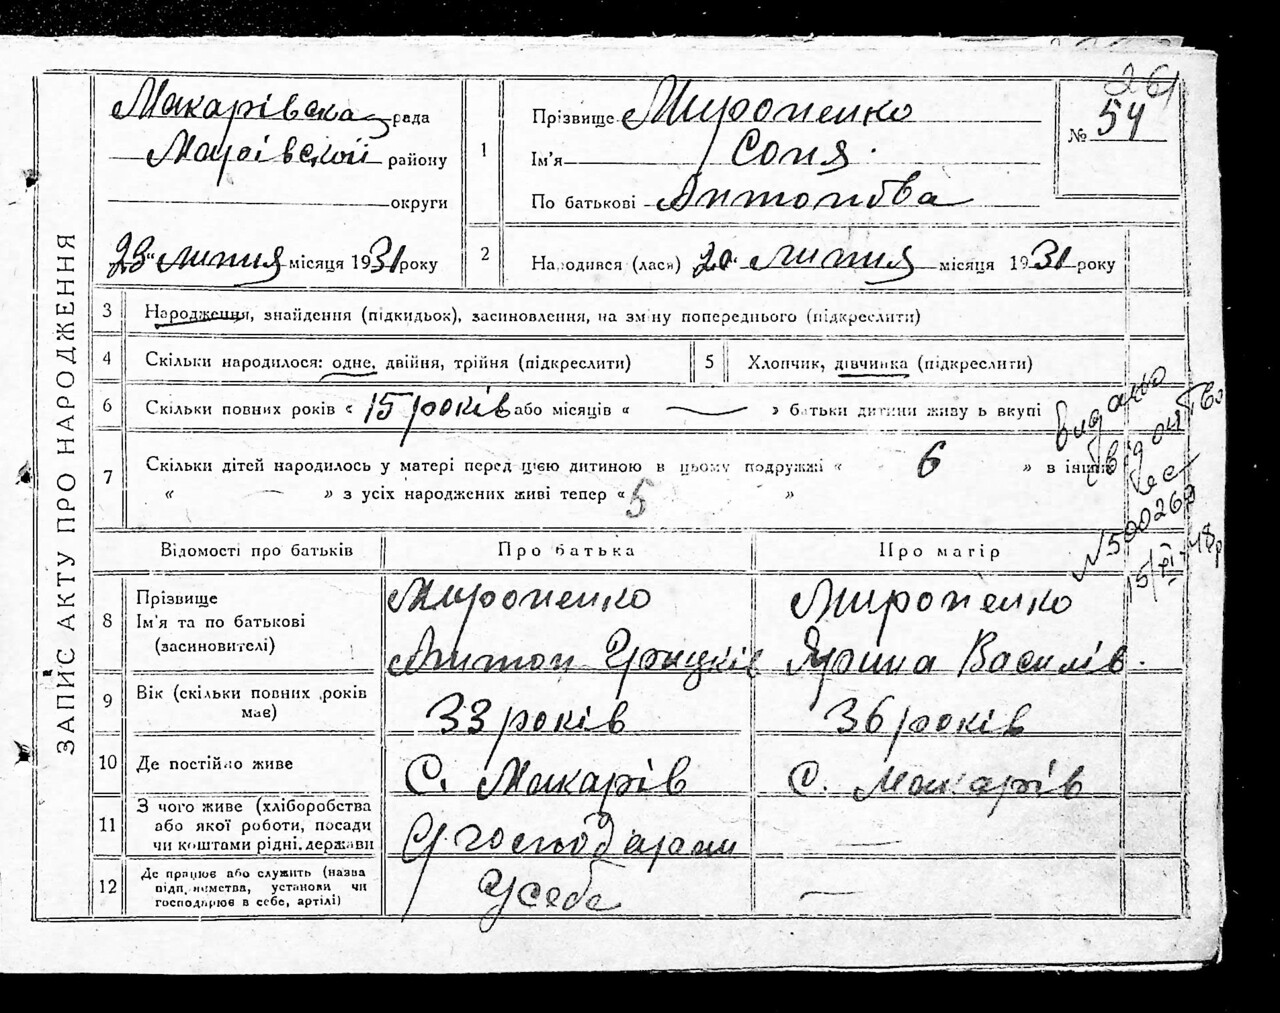 ЗАПИС АКТУ ПРО НАРОДЖЕННЯ
26
Макарівська рада
району
округи
23 " липня місяця 1931 року
1
Прізвище Мироненко
Ім'я Соня
По батькові Антонова
№ 54
2
Народився (лася) 20 " липня місяця 1931 року
3 Народження, знайдення (підкидьок), засиновлення, на зміну попереднього (підкреслити)
4 Скільки народилося: одне, двійня, трійня (підкреслити)
5 Хлопчик, дівчинка (підкреслити)
6 Скільки повних років « 15 років або місяців « — » батьки дитини живуть вкупі
7 Скільки дітей народилось у матері перед цією дитиною в цьому подружжі « 6 » в інших
« — » з усіх народжених живі тепер « 5 »
видано
свідоцтво
N 500260
15/XI-48р
Відомості про батьків
Про батька
Про матір
8 Прізвище
Ім'я та по батькові
(засновителі)
Мироненко
Антон Грицків
Мироненко
Ярина Василів.
9 Вік (скільки повних років
має)
33 років
36 років
10 Де постійно живе
С. Макарів
С. Макарів
11 З чого живе (хліборобства
або якої роботи, посади
чи коштами рідні, держави
господарами
—
12 Де працює або служить (назва
підприємства, установи чи
господарює в себе, артілі)
У себе
—